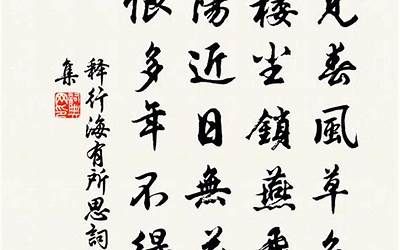 見春風草色
樓尘鎖燕
陽近日無
恨多年不得
释行海有所思詞
集